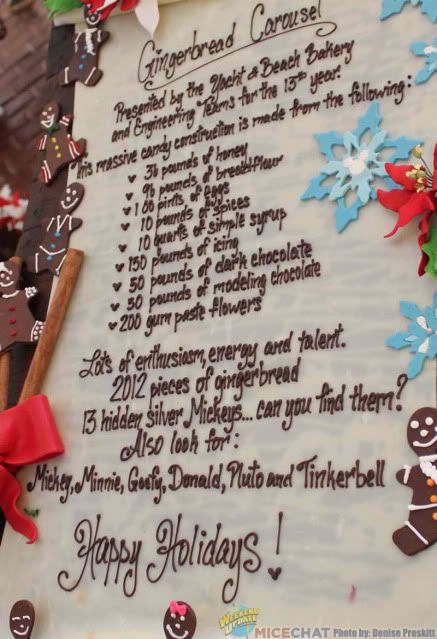 Gingerbread Carousel
Presented by the Yacht & Beach Bakery
and Engineering Teams for the 13th year.
This massive candy construction is made from the following:
36 pounds of honey
96 pounds of breadflour
100 pints of eggs
10 pounds of spices
10 quarts of simple syrup
150 pounds of icing
50 pounds of dark chocolate
50 pounds of modeling chocolate
200 gum paste flowers
Lots of enthusiasm, energy and talent.
2012 pieces of gingerbread
13 hidden silver Mickeys... can you find them?
Also look for:
Mickey, Minnie, Goofy, Donald, Pluto and Tinkerbell
Happy Holidays!
WEEKEND UPDATE
MICECHAT Photo by: Denise Preskitt